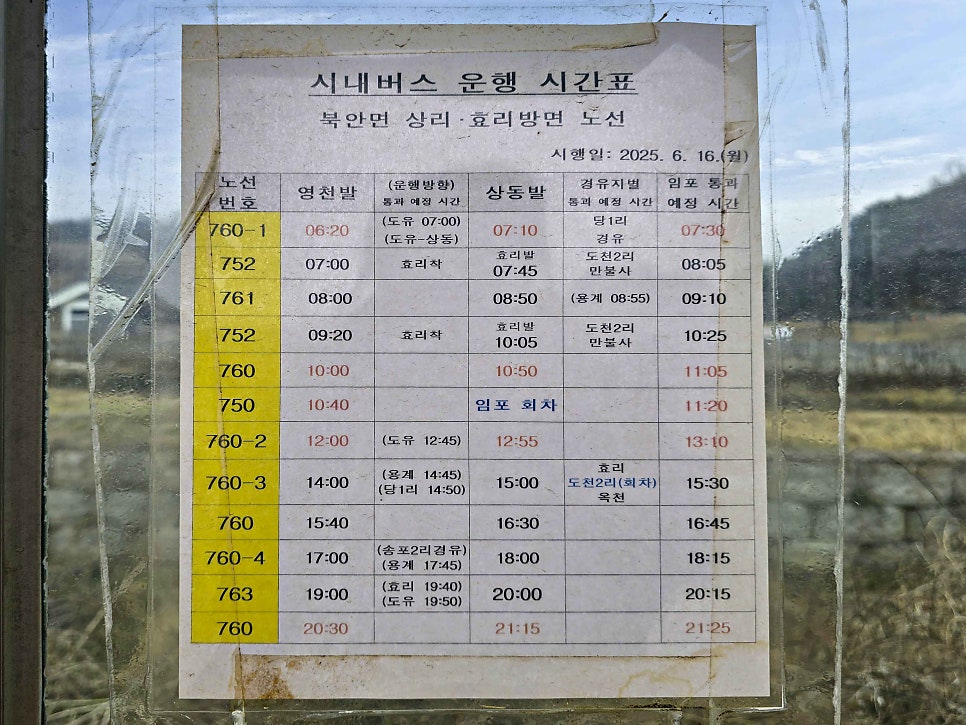 시내버스 운행 시간표
북안면 상리·효리방면 노선
시행일: 2025. 6. 16.(월)
노선 번호 영천발 (운행방향) 통과 예정 시간 상동발 경유지별 통과 예정 시간 임포 통과 예정 시간
760-1 06:20 (도유 07:00) (도유-상동) 07:10 당1리 경유 07:30
752 07:00 효리착 효리발 07:45 도천2리 만불사 08:05
761 08:00 08:50 (용계 08:55) 09:10
752 09:20 효리착 효리발 10:05 도천2리 만불사 10:25
760 10:00 10:50 11:05
750 10:40 임포 회차 11:20
760-2 12:00 (도유 12:45) 12:55 13:10
760-3 14:00 (용계 14:45) (당1리 14:50) 15:00 효리 도천2리(회차) 옥천 15:30
760 15:40 16:30 16:45
760-4 17:00 (송포2리경유) (용계 17:45) 18:00 18:15
763 19:00 (효리 19:40) (도유 19:50) 20:00 20:15
760 20:30 21:15 21:25